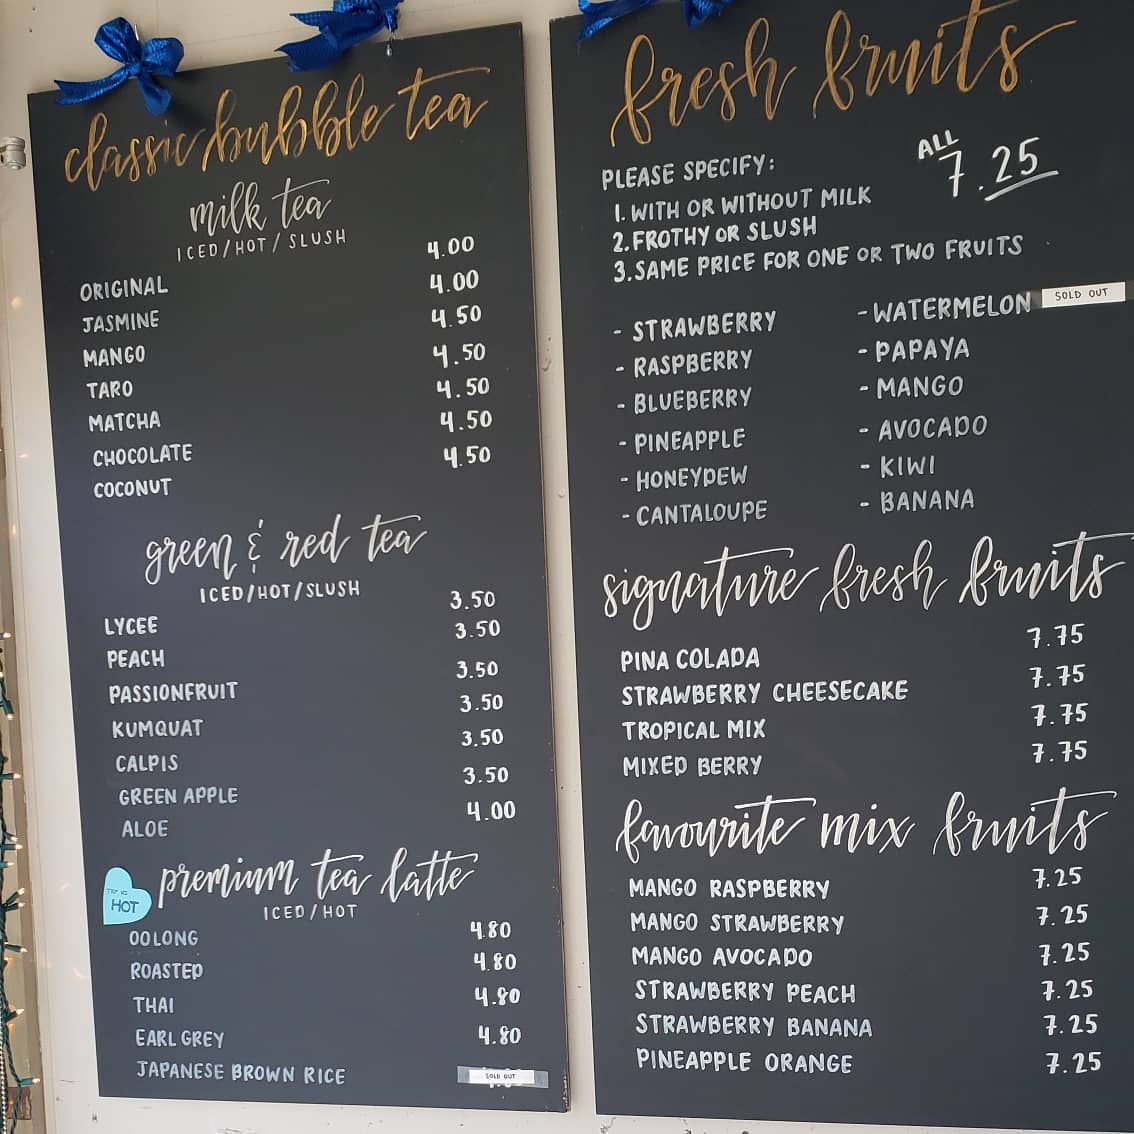 classic bubble tea
milk tea
ICED/HOT/SLUSH
ORIGINAL 4.00
JASMINE 4.00
MANGO 4.50
TARO 4.50
MATCHA 4.50
CHOCOLATE 4.50
COCONUT 4.50
green & red tea
ICED/HOT/SLUSH
LYCEE 3.50
PEACH 3.50
PASSIONFRUIT 3.50
KUMQUAT 3.50
CALPIS 3.50
GREEN APPLE 3.50
ALOE 4.00
premium tea latte
TRY US HOT
ICED/HOT
OOLONG 4.80
ROASTED 4.80
THAI 4.80
EARL GREY 4.80
JAPANESE BROWN RICE SOLD OUT
fresh fruits
ALL 7.25
PLEASE SPECIFY:
1. WITH OR WITHOUT MILK
2. FROTHY OR SLUSH
3. SAME PRICE FOR ONE OR TWO FRUITS
- STRAWBERRY - WATERMELON SOLD OUT
- RASPBERRY - PAPAYA
- BLUEBERRY - MANGO
- PINEAPPLE - AVOCADO
- HONEYDEW - KIWI
- CANTALOUPE - BANANA
signature fresh fruits
PINA COLADA 7.75
STRAWBERRY CHEESECAKE 7.75
TROPICAL MIX 7.75
MIXED BERRY 7.75
favourite mix fruits
MANGO RASPBERRY 7.25
MANGO STRAWBERRY 7.25
MANGO AVOCADO 7.25
STRAWBERRY PEACH 7.25
STRAWBERRY BANANA 7.25
PINEAPPLE ORANGE 7.25